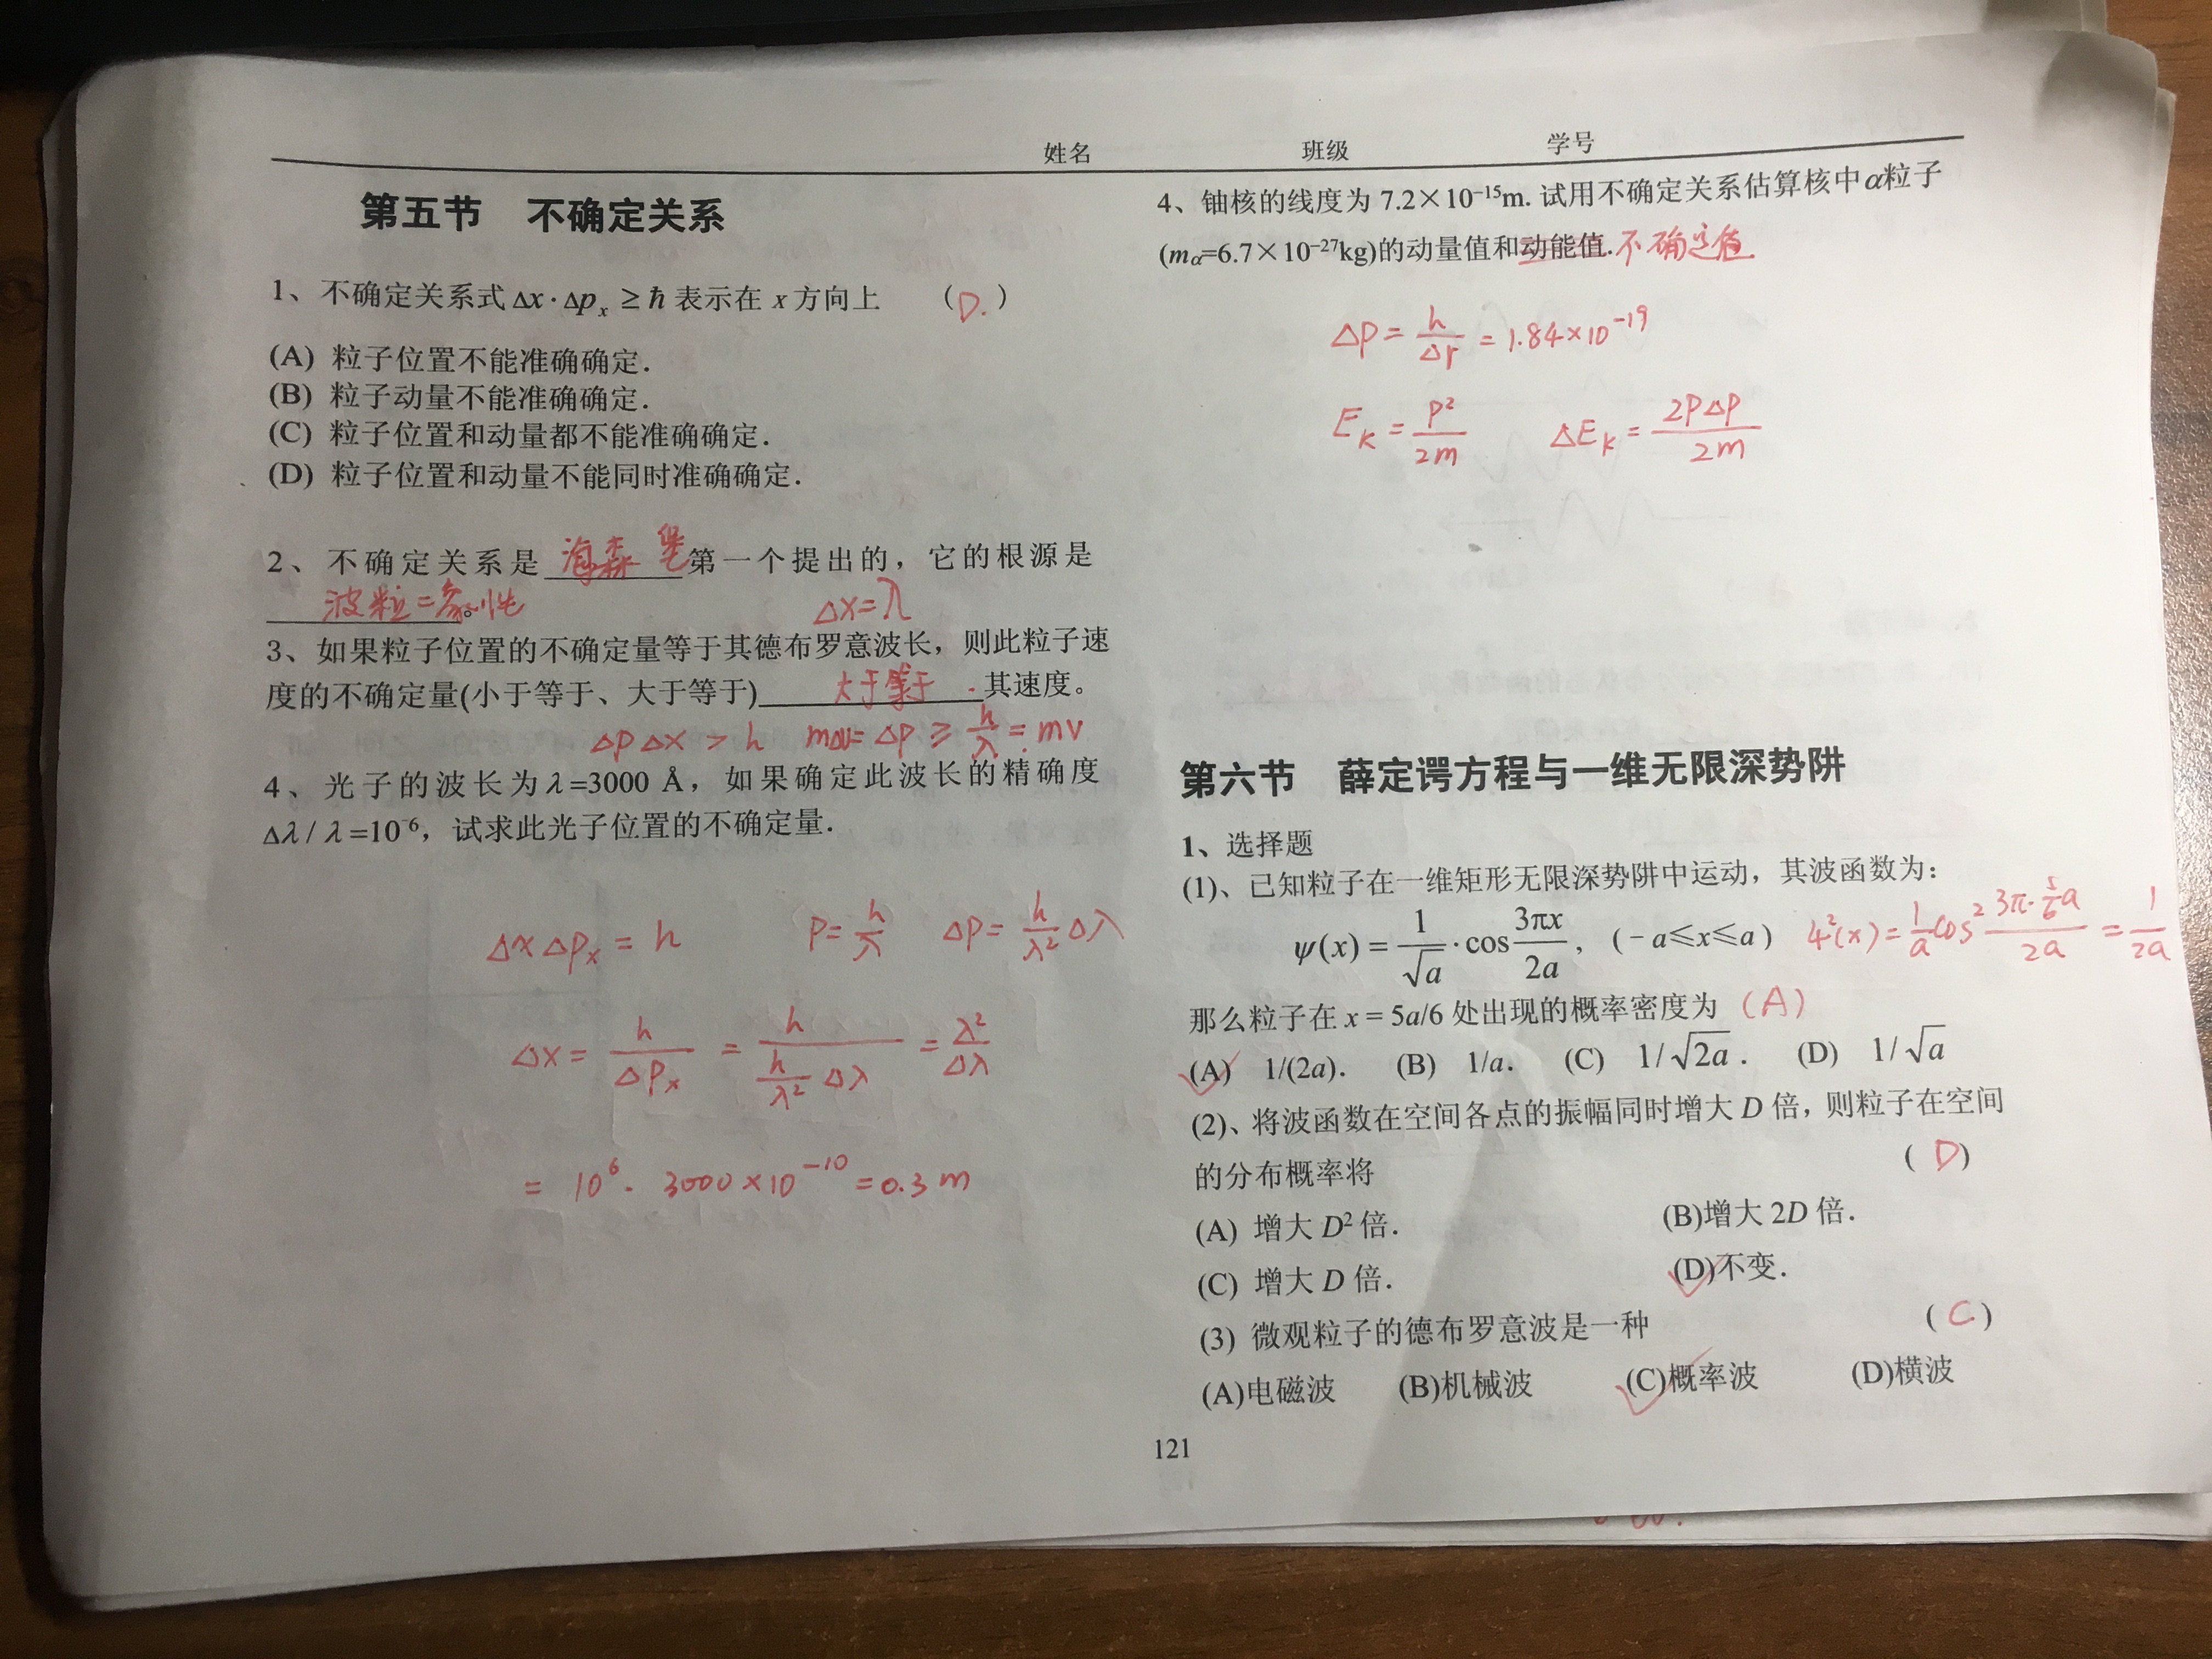 姓名 班级 学号
第五节 不确定关系
1、不确定关系式 Δx·Δpₓ ≥ ħ 表示在 x 方向上 (D.)
(A) 粒子位置不能准确确定.
(B) 粒子动量不能准确确定.
(C) 粒子位置和动量都不能准确确定.
(D) 粒子位置和动量不能同时准确确定.
2、不确定关系是 海森堡 第一个提出的，它的根源是
波粒二象性。
Δx=λ
3、如果粒子位置的不确定量等于其德布罗意波长，则此粒子速
度的不确定量(小于等于、大于等于) 大于等于. 其速度。
ΔpΔx > h mΔv=Δp ≥ h/λ = mv
4、光子的波长为 λ=3000 Å，如果确定此波长的精确度
Δλ / λ =10⁻⁶，试求此光子位置的不确定量.
ΔxΔpₓ = h P= h/λ ΔP= h/λ² Δλ
Δx= h/ΔPₓ = h/(h/λ² Δλ) = λ²/Δλ
= 10⁶ · 3000×10⁻¹⁰ =0.3 m
4、铀核的线度为 7.2×10⁻¹⁵m. 试用不确定关系估算核中α粒子
(mα=6.7×10⁻²⁷kg)的动量值和动能值. 不确定值
ΔP= h/Δr = 1.84×10⁻¹⁹
E_K = P²/2m ΔE_K = 2PΔP/2m
第六节 薛定谔方程与一维无限深势阱
1、选择题
(1)、已知粒子在一维矩形无限深势阱中运动，其波函数为：
ψ(x) = 1/√a · cos 3πx/2a， (-a≤x≤a) ψ²(x) = 1/a cos² (3π·5/6a)/2a = 1/2a
那么粒子在 x = 5a/6 处出现的概率密度为 (A)
(A) 1/(2a). (B) 1/a. (C) 1/√2a . (D) 1/√a
(2)、将波函数在空间各点的振幅同时增大 D 倍，则粒子在空间
的分布概率将 (D)
(A) 增大 D² 倍. (B)增大 2D 倍.
(C) 增大 D 倍. (D)不变.
(3) 微观粒子的德布罗意波是一种 (C)
(A)电磁波 (B)机械波 (C)概率波 (D)横波
121